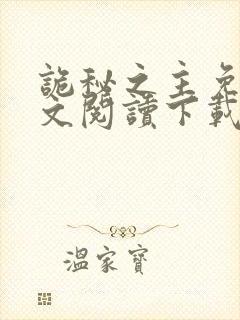 詭秘之主免
文閱讀下載
溫家寶